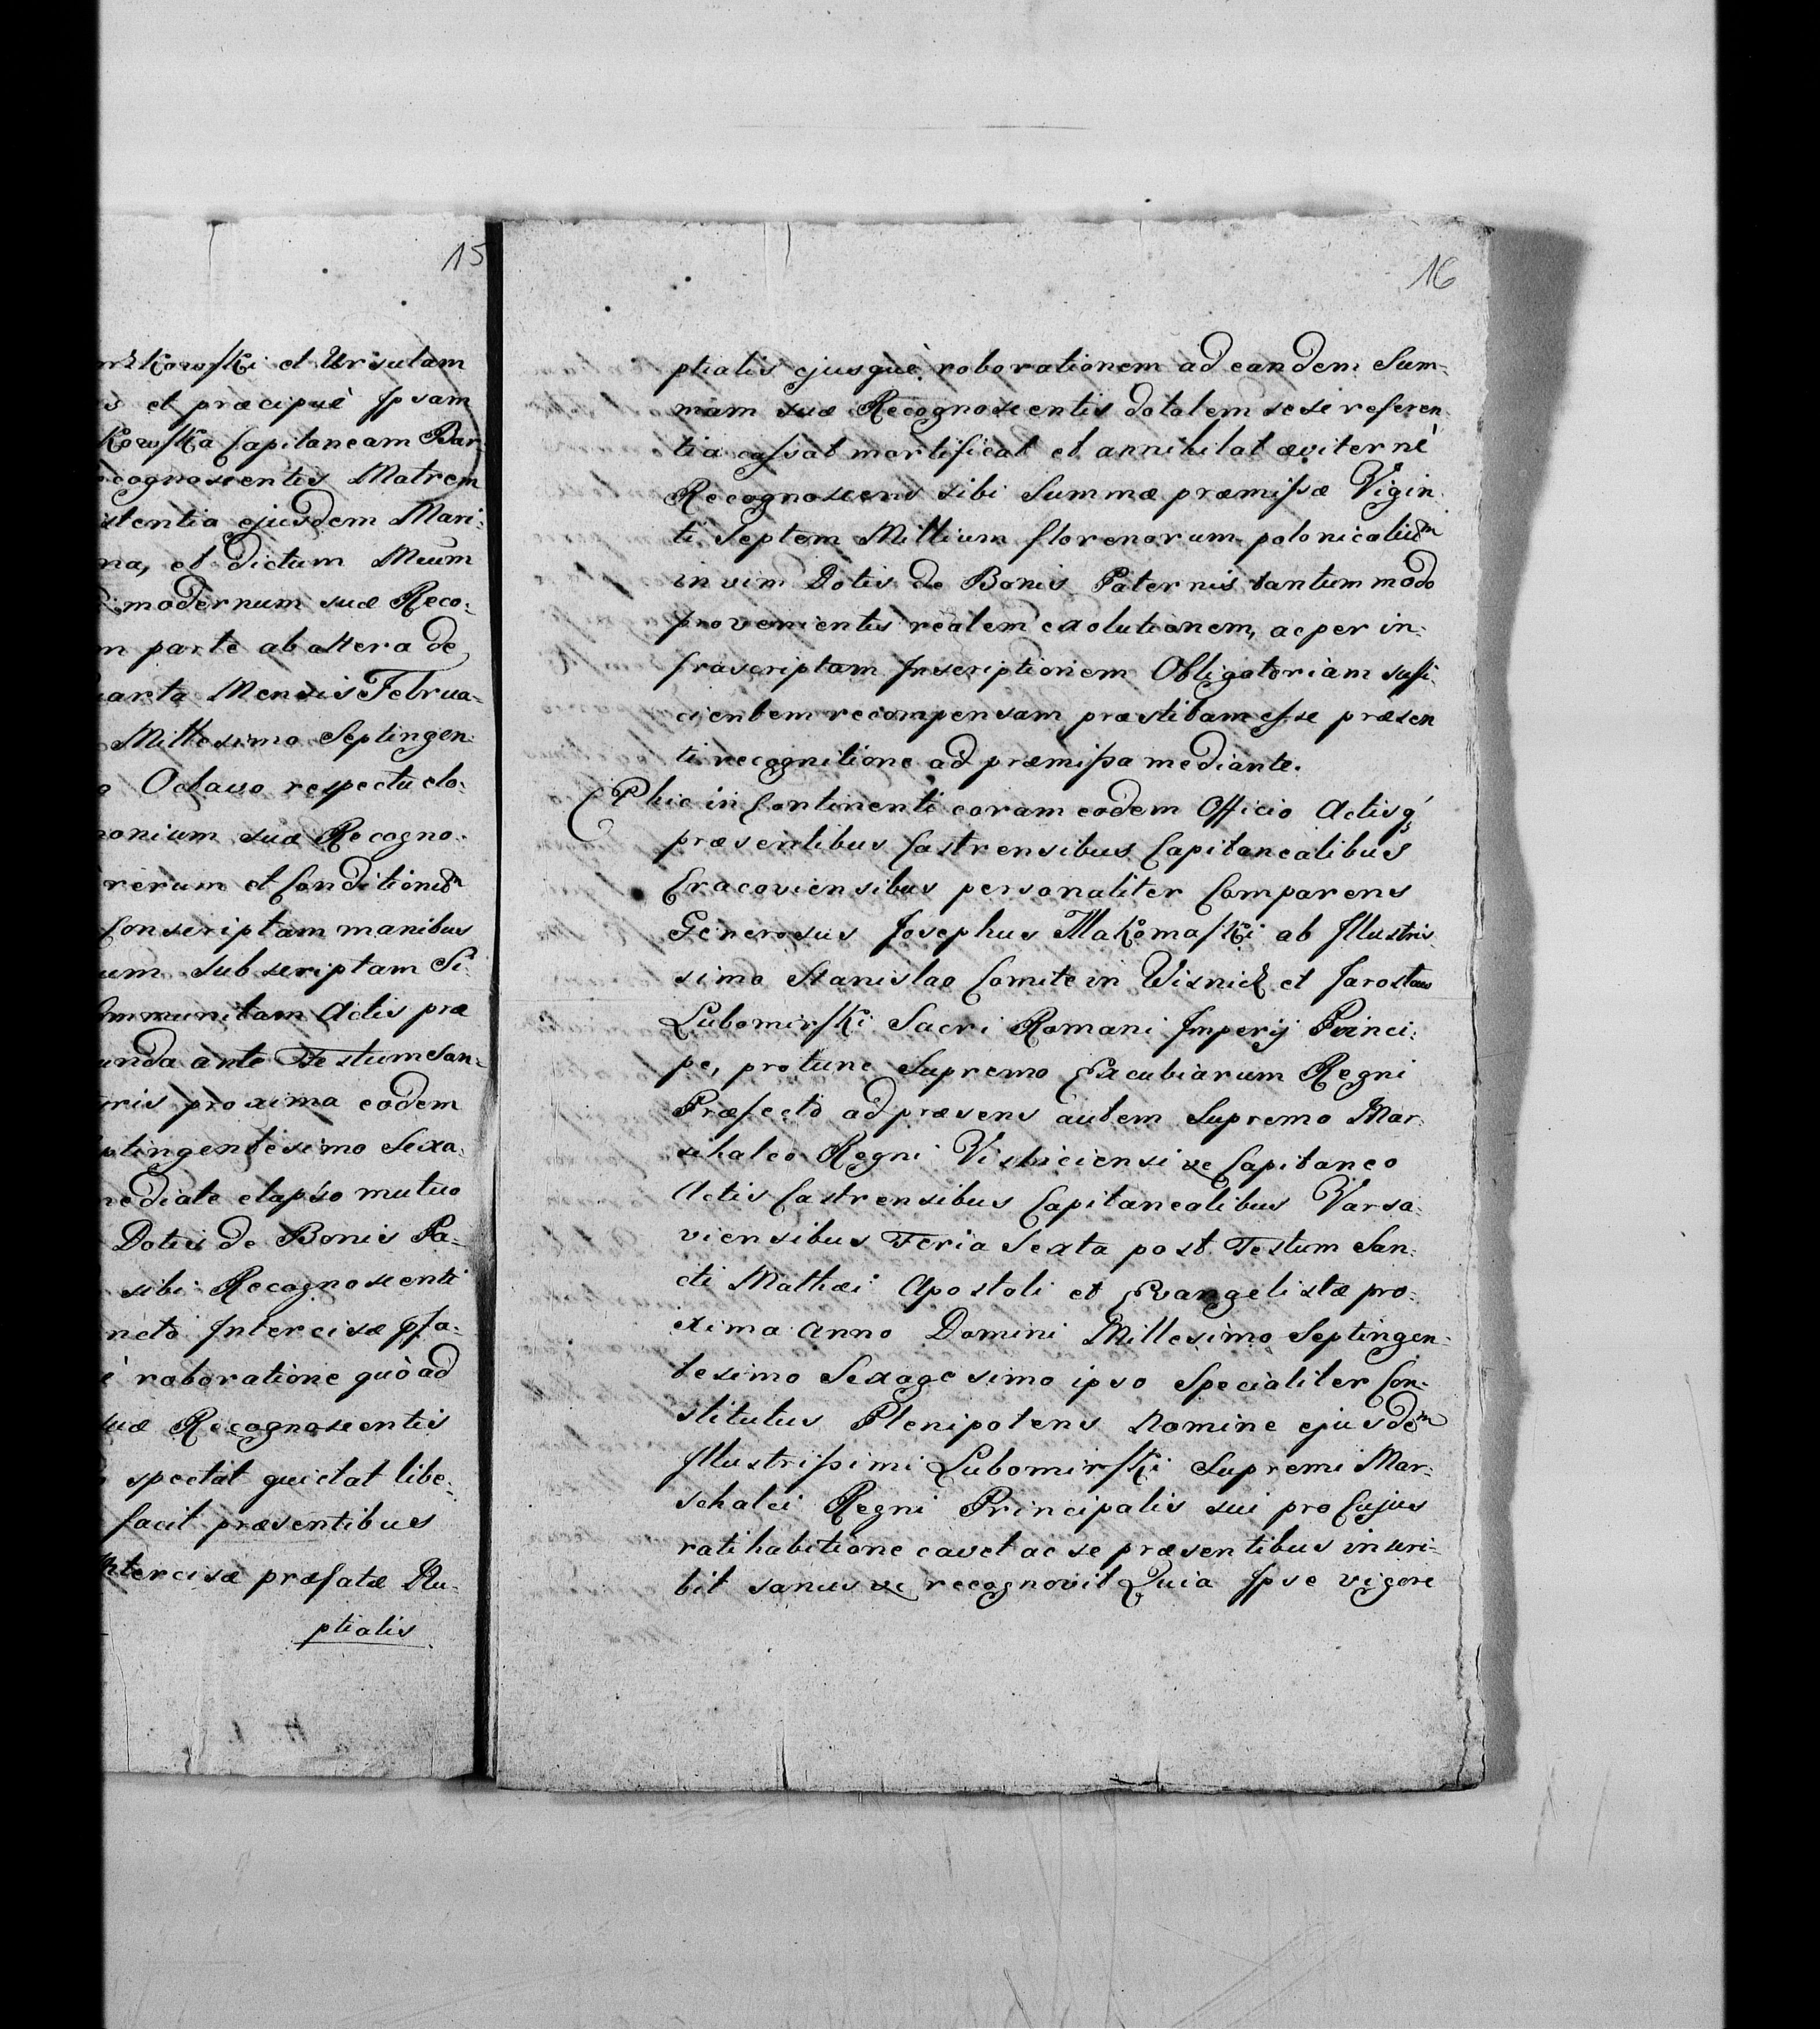 15
kowski et Ursulam
et præcipuè Ipsam
Kowska Capitaneam Bar
cognoscentis Matrem
stentia ejusdem Mari:
na, et dictum Meum
modernum suæ Reco:
m parte ab altera de
arta Mensis Februa-
Millesimo Septingen:
o Octavo respectu do:
monium suæ Recogno:
rerum et Conditionum
Conscriptam manibus
um subscriptam Si:
mmunitam Actis præ
unda ante Festum San:
ris proxima eodem
ptingentesimo Sexa:
mediate elapso mutuo
Dotis de Bonis Pa:
sibi Recognoscenti
ncto Intercisæ Ipsa:
è roboratione quòad
suæ Recognoscentis
spectat quietat libe:
facit præsentibus
ntercisæ præfatæ Nu:
ptialis
16
ptialis ejusquè roborationem ad eandem Sum:
mam suæ Recognoscentis dotalem sese referen
tia cassat mortificat et annihilat æviternè
Recognoscens sibi Summæ præmissæ Vigin:
ti Septem Millium florenorum polonicalium
in vim Dotis de Bonis Paternis tantummodo
provenientis realem exolutionem, ac per in:
frascriptam Inscriptionem Obligatoriam suffi:
cientem recompensam præstitam esse præsen
ti recognitione ad præmissa mediante.
Et hic in Continenti coram eodem Officio Actisq́
præsentibus Castrensibus Capitanealibus
Cracoviensibus personaliter Comparens
Generosus Josephus Makomaski ab Illustris
simo Stanislao Comite in Wisnicz et Jaroslaw
Lubomirski Sacri Romani Imperij Princi:
pe, protunc Supremo Excubiarum Regni
Præfecto ad præsens autem Supremo Mar:
schalco Regni Visliciensi &c Capitaneo
Actis Castrensibus Capitanealibus Varsa:
viensibus Feria Sexta post Festum San:
cti Mathæi Apostoli et Evangelistæ pro:
xima Anno Domini Millesimo Septingen:
tesimo Sexagesimo ipso Specialiter Con:
stitutus Plenipotens Nomine ejusdem
Illustrissimi Lubomirski Supremi Mar:
schalci Regni Principalis sui pro Cujus
ratihabitione cavet ac se præsentibus inscri:
bit sanus &c recognovit Quia Ipse vigore